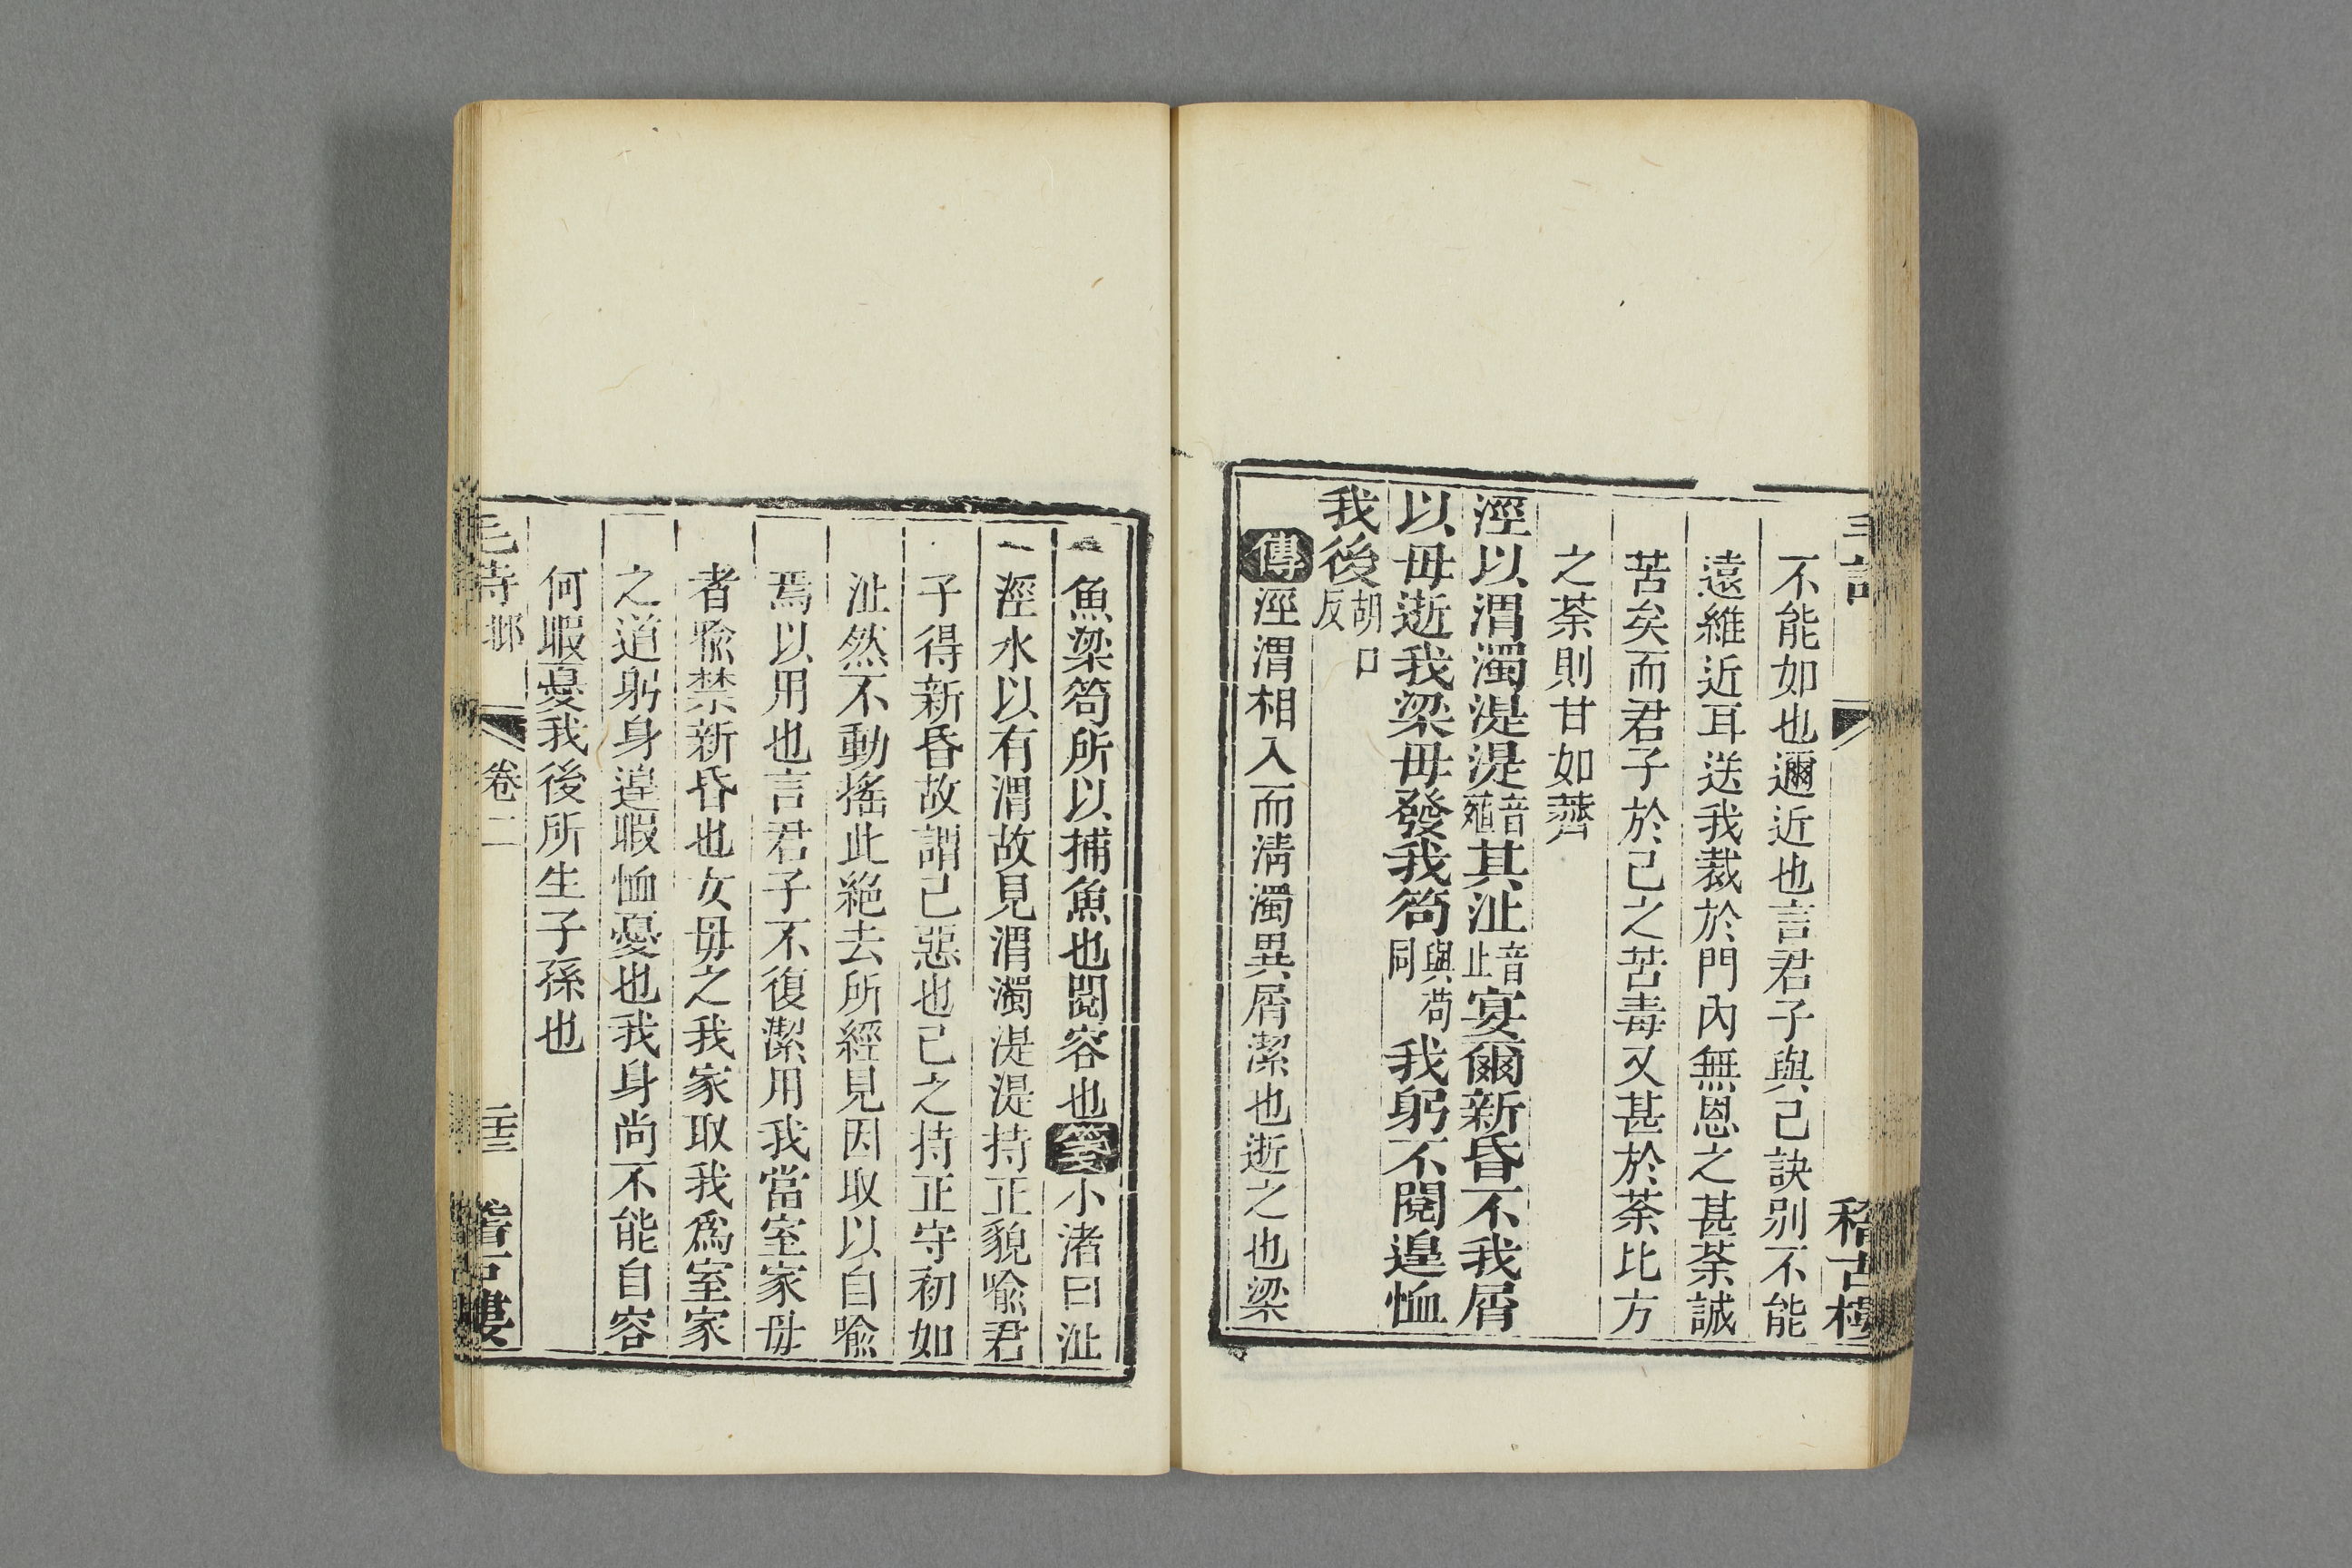 不能如也邇近也言君子與己訣別不能
遠維近耳送我裁於門內無恩之甚荼誠
苦矣而君子於己之苦毒又甚於荼比方
之荼則甘如薺
涇以渭濁湜湜音殖其沚音止宴爾新昏不我屑
以毋逝我梁毋發我笱與苟同我躬不閱遑恤
我後胡口反
傳涇渭相入而淸濁異屑潔也逝之也梁
魚梁笱所以捕魚也閱容也箋小渚曰沚
涇水以有渭故見渭濁湜湜持正貌喻君
子得新昏故謂己惡也己之持正守初如
沚然不動搖此絶去所經見因取以自喻
焉以用也言君子不復潔用我當室家毋
者喻禁新昏也女毋之我家取我爲室家
之道躬身遑暇恤憂也我身尚不能自容
何暇憂我後所生子孫也
毛詩 鄁 卷二 二十三 稽古樓